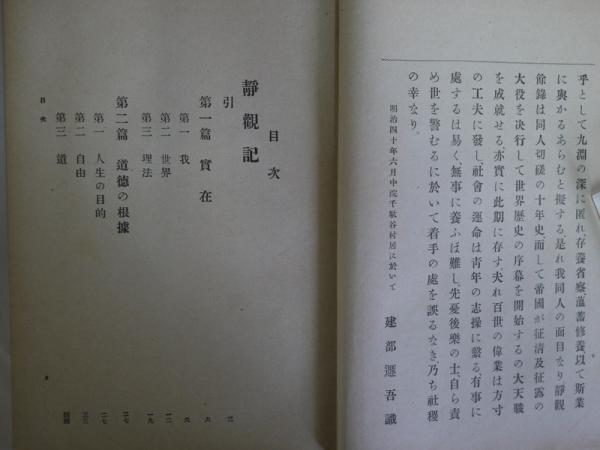 乎として九淵の深に匿れ、存養省察、蘊蓄修養、以て斯業
に與かるあらむと擬する、是れ我同人の面目なり靜觀
餘錄は同人切磋の十年史、而して帝國が征淸及征露の
大役を決行して世界歷史の序幕を開始するの大天職
を成就せる、亦實に此期に存す夫れ百世の偉業は方寸
の工夫に發し、社會の運命は靑年の志操に繫る、有事に
處するは易く、無事に養ふは難し、先憂後樂の士、自ら責
め世を警むるに於いて着手の處を誤るなき、乃ち社稷
の幸なり。
明治四十年六月中院千駄谷村居に於いて
建部遯吾識
目次
靜觀記
引
第一篇 實在
第一 我
第二 世界
第三 理法
第二篇 道德の根據
第一 人生の目的
第二 自由
第三 道
目次